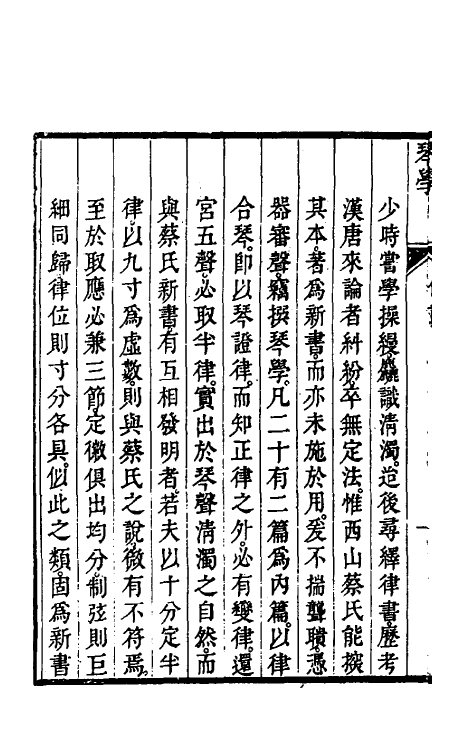 琴學
少時嘗學操縵麤識清濁迨後尋繹律書歷考
漢唐來論者糾紛卒無定法惟西山蔡氏能探
其本著為新書而亦未施於用爰不揣聾聵憑
器審聲竊撰琴學凡二十有二篇為內篇以律
合琴即以琴證律而知正律之外必有變律還
宮五聲必取半律實出於琴聲清濁之自然而
與蔡氏新書有互相發明者若夫以十分定半
律以九寸為虛數則與蔡氏之說微有不符焉
至於取應必兼三節定徽俱出均分制弦則巨
細同歸律位則寸分各具似此之類固為新書